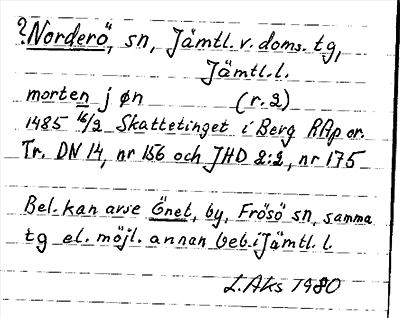 ?Norderö, sn, Jämtl. v. doms. tg,
Jämtl. l.
morten j øn (r. 2)
1485 16/2 Skattetinget i Berg RAp or.
Tr. DN 14, nr 156 och JHD 2:2, nr 175
Bel. kan avse Önet, by, Frösö sn, samma
tg el. möjl. annan beb. i Jämtl. l
L. Aks 1980